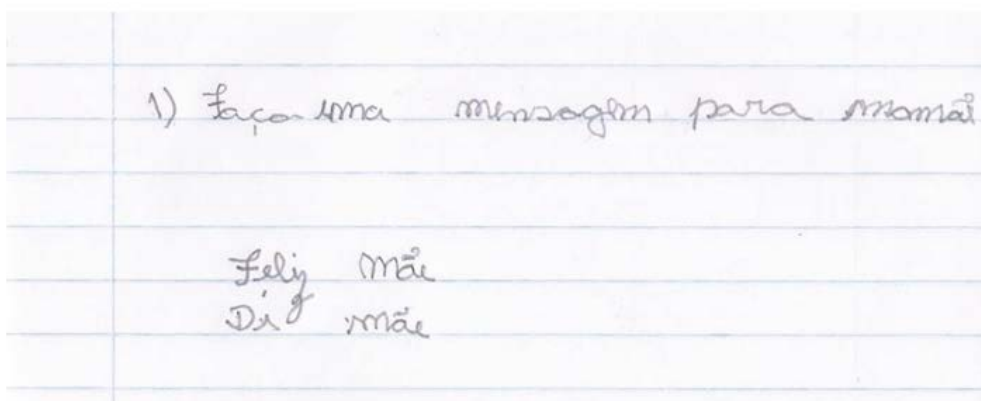 1) Faça uma mensagem para mamãe
Feliz mãe
Di mãe